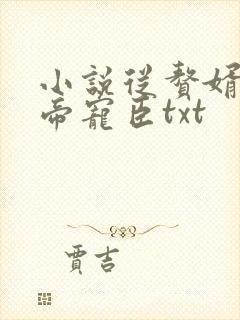 小說從贅婿
帝寵臣txt
賈吉